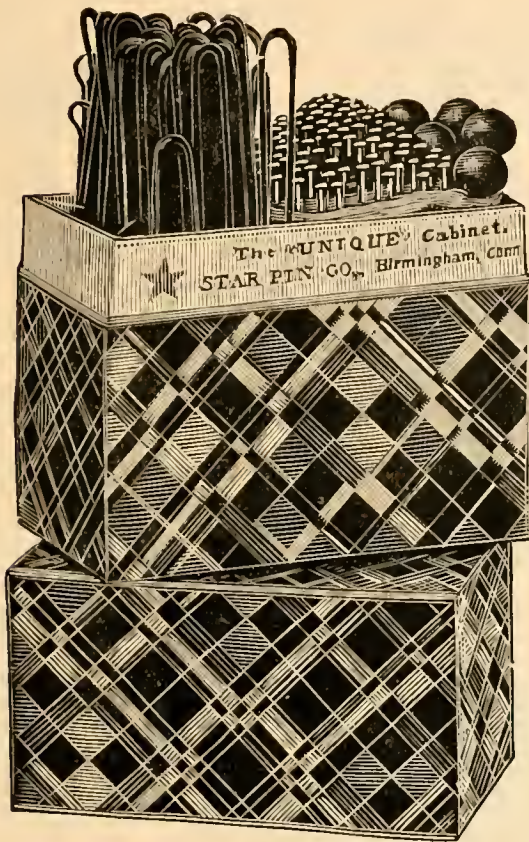 The "UNIQUE" Cabinet.
STAR PIN CO., Birmingham, Conn